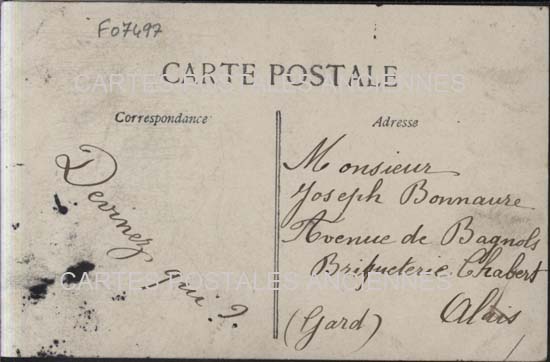 F07497
CARTE POSTALE
CARTES POSTALES ANCIENNES
Correspondance
Adresse
Devinez qui ?
Monsieur
Joseph Bonnaure
Avenue de Bagnols
Briqueterie Chabert
Alais
(Gard)
CARTES POSTALES ANCIENNES